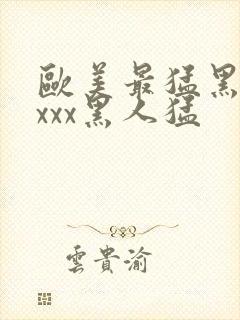 歐美最猛黑
xxx黑人猛
雲貴渝